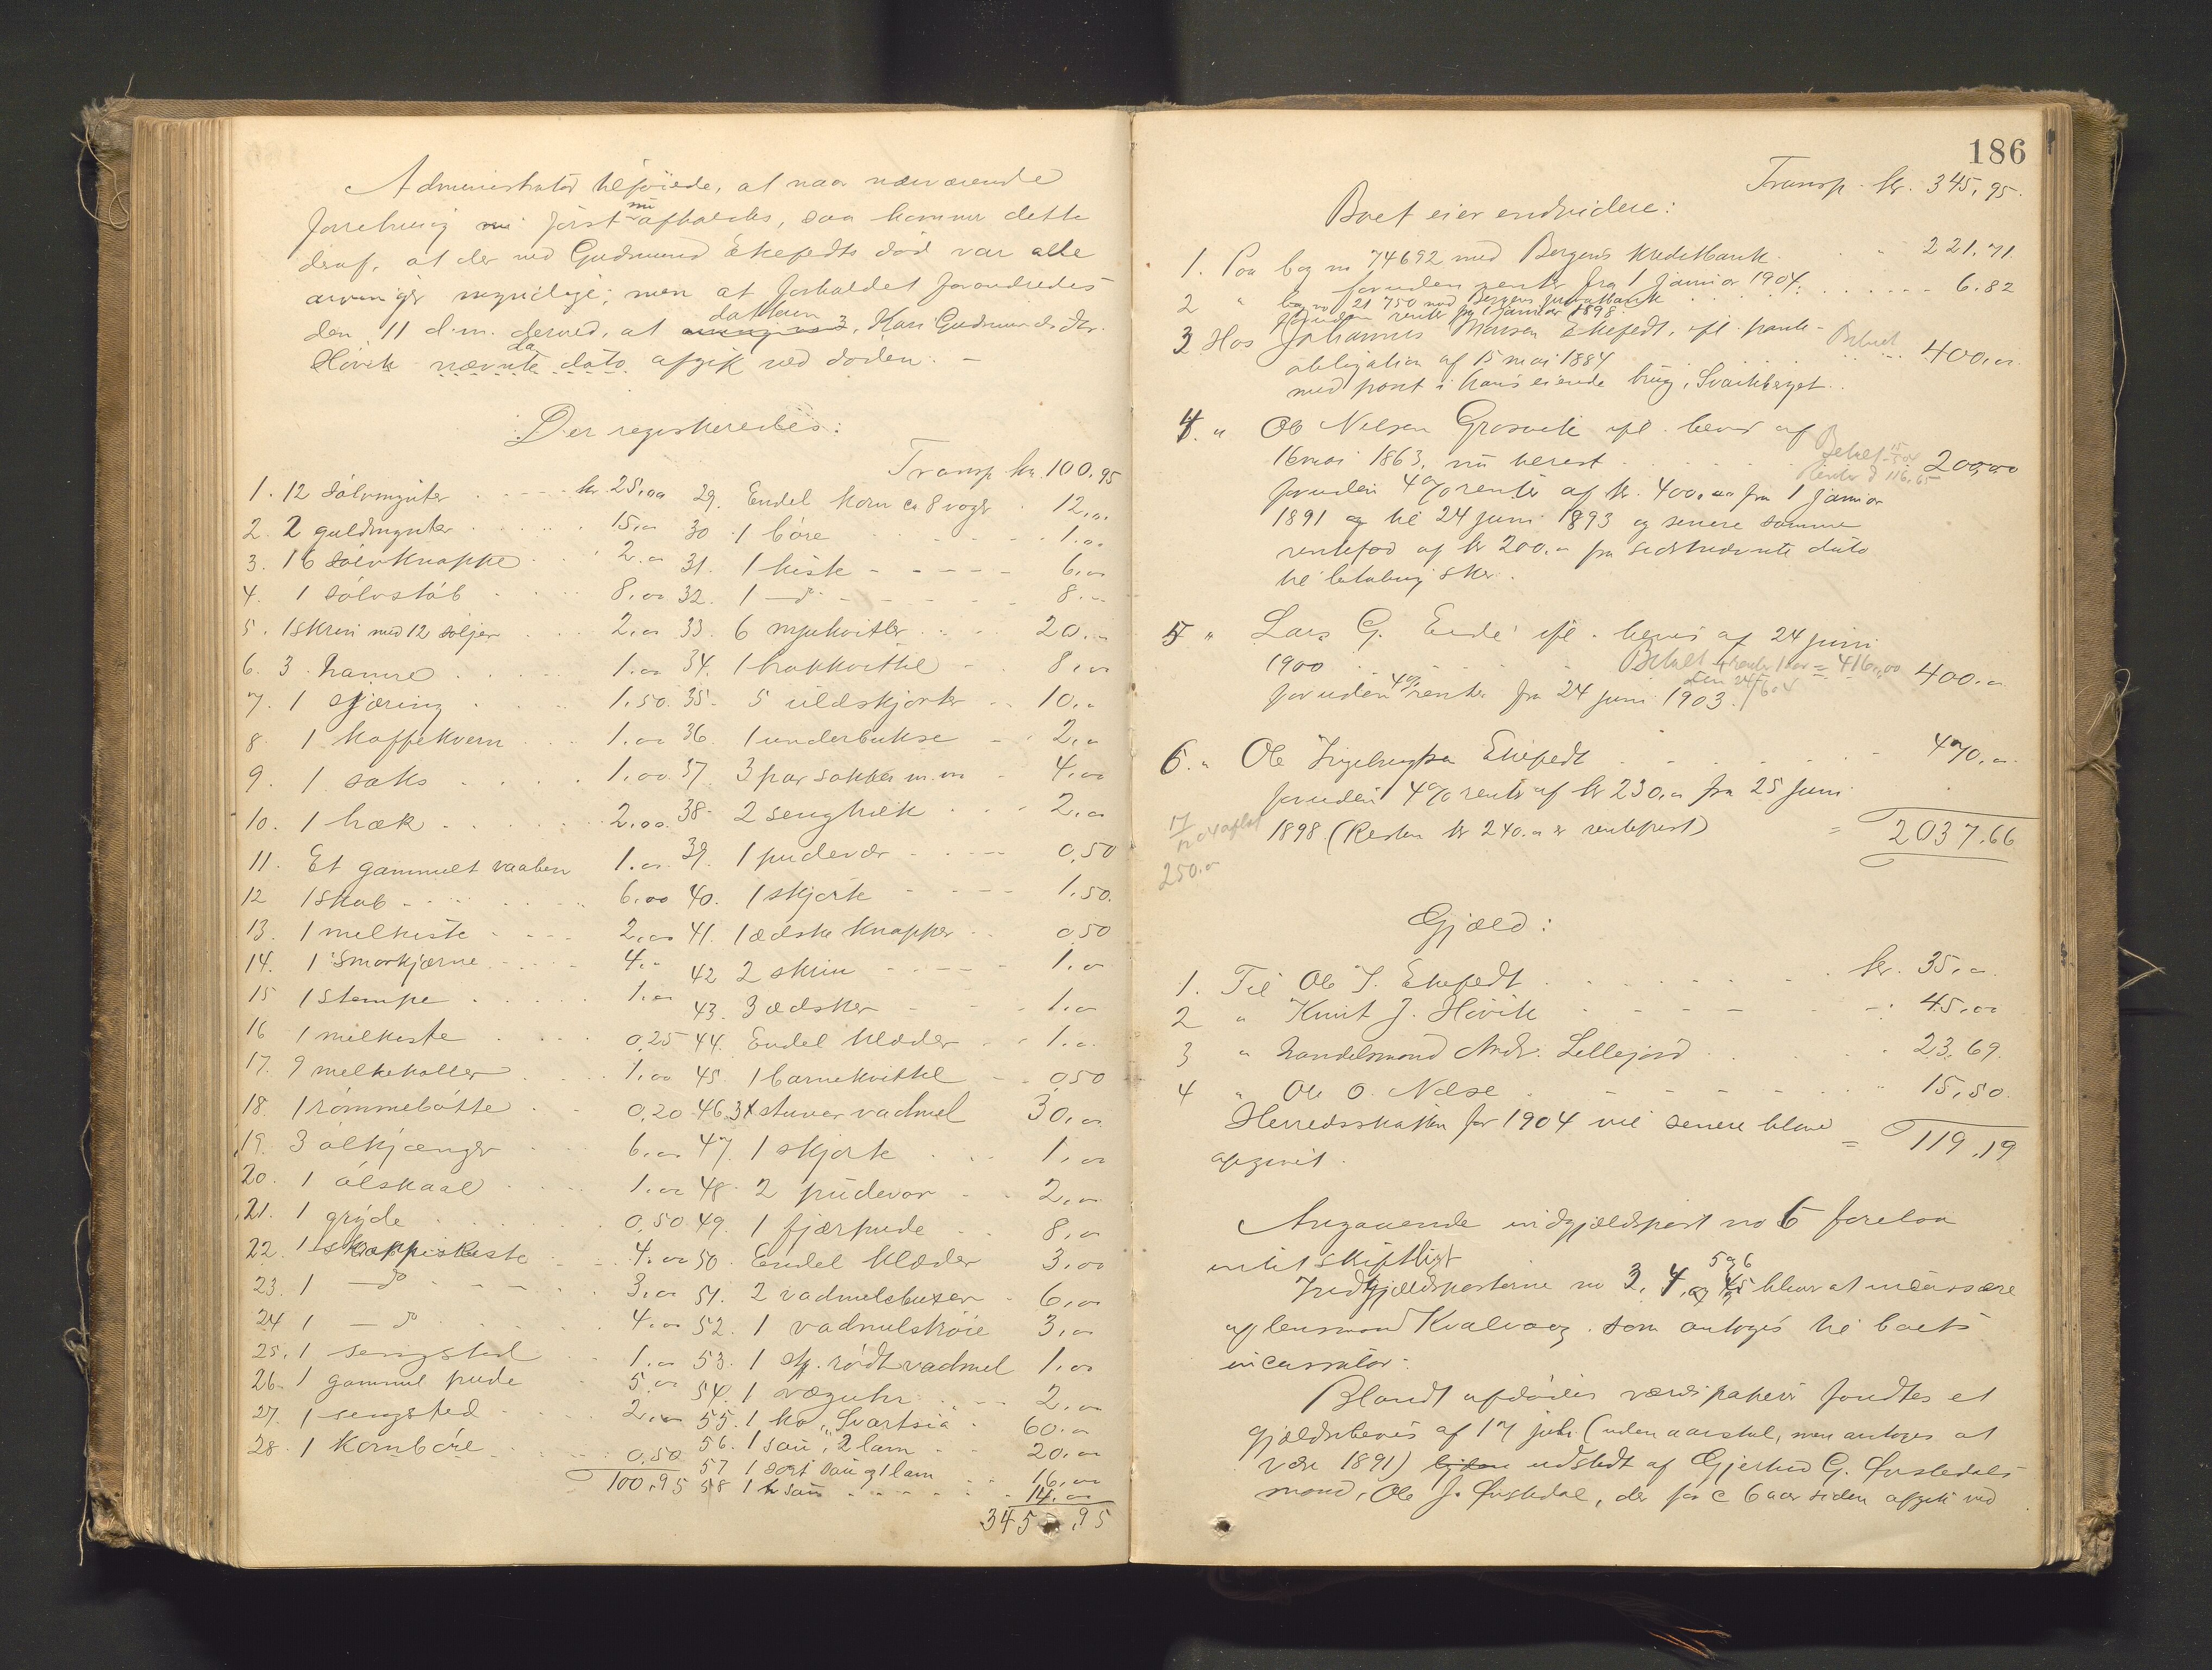 Administrator tilføiede, at naar nærværende
forretning først nu afholdes, saa kommer dette
deraf, at der ved Gudmund Ekefedts død var alle
arvinger myndige; men at forholdet forandredes
den 11 d.m. derved, at datteren 3, Kari Gudmundsdtr.
Hövik nævnte dato afgik ved døden. –
Der registreredes:
Transp kr. 100.95
1. 12 sölvmynter . . . kr. 25,00
2. 2 guldmynter . . . 15,00
3. 16 sölvknappe . . 2.00
4. 1 sölvstöb . . 8,00
5. 1 skrin med 12 söljer . . 2,00
6. 3 hamre . . 1.00
7. 1 gjæring . . 1,50
8. 1 kaffekvern . . 1,00
9. 1 saks . . 1,00
10. 1 hæk . . 2,00
11. Et gammelt vaaben 1.00
12 1 skab . . 6,00
13. 1 melkiste . . 2,00
14. 1 smørkjærne . . 4.–
15 1 stampe . . 1.00
16 1 melkiste . . 0,25
17. 9 melkekoller . . 1,00
18. 1 rømmebøtte . . 0,20
19. 3 ølkjænger . . 6,00
20. 1 ølskaal . . 1.00
21. 1 grÿde . . 0,50
22. 1 skrappiskiste . . 4.00
23. 1 —d° . . 3,00
24 1 —d° . . 4.00
25. 1 sengsted . . 1.00
26. 1 gammel pude . . 5,00
27. 1 sengsted . . 2,00
28. 1 kornbøre . . 0,50
100,95
29. Endel korn ca 8 voger . 12,00
30 1 böre . . 1.00
31. 1 kiste . . 6,00
32. 1 —d° . . 8.–
33. 6 mjukvitler . . 20.–
34. 1 hakkvittel . . 8,00
35. 5 uldskjorter . . 10.–
36. 1 underbukse . . 2,00
37. 3 par sokker m.m . 4,00
38. 2 senghæk . . 2,00
39. 1 pudevær . . 0,50
40. 1 skjorte . . 1.50.
41. 1 ædske knapper . . 0,50
42 2 skrin . . 1.00
43. 3 ædsker . . 1.00
44. Endel klæder . . 1.00
45. 1 barnekvittel . . 0,50
46. 3 stuver vadmel 30,00
47. 1 skjorte . . 1,00
48. 2 pudevar . . 2,00
49. 1 fjærpude . . 8,00
50. Endel klæder 3,00
51. 2 vadmelsbuxer . 6,00
52. 1 vadmelströie 3,00
53. 1 stk. rødt vadmel 1,00
54. 1 væguhr . . 2,00
55. 1 ko „Svartsia . 60.00
56. 1 sau, 2 lam . . 20.00
57 1 sort sau og 1 lam . . 16,00
58 1 sau . . 14,00
345,95
186
Transp. kr. 345,95.
Boet eier endvidere:
1. Paa bog no 74692 med Bergens Kreditbank . . 221,71
foruden renter fra 1 januar 1904.
2 " bog no 21750 med Bergens privatbank . . 6.82
foruden renter fra 1 januar 1898.
3 Hos Johannes Monsen Ekefedt, ifl. pante- Betalt 400,00
obligation af 15 mai 1884
med pant i hans eiende brug, Svarthberget.
4. " Ole Nelsen Grosvik ifl. bevis af
16 mai 1863, nu herest . . Betalt 200,00
Renter d 116,65
foruden 4% renter af kr. 400,00 fra 1 januar
1891 til 24 juni 1893 og senere samme
rentefod af kr 200.00 fra sidstnævnte dato
til betaling sker.
5 " Lars G. Eide ifl. bevis af 24 juni
1900 . . Betalt + renter 1 aar = 416,00 400.00
den 24/6 04
foruden 4% renter fra 24 juni 1903.
6. " Ole Ingebrigtsen Ekefedt . . 470,00
foruden 4% renter af kr 230,00 fra 25 juni
1898 (Resten kr 240.00 er rentefrit) = 2037.66
250.00
Gjæld:
1. Til Ole I. Ekefedt . . kr. 35,00
2 " Knut J. Hövik . . 45,00
3 " handelsmand Andr. Lillefjord . . 23,69
4 " Ole O. Nelse . . 15,50
Herredsskatten for 1904 vil senere blive = 119,19
opgivet.
Angaaende indgjældspost no 6 forelaa
intet skriftligt
Indgjældsposterne no 3, 4, 5 og 6 bliver at incassere
af lensmand Kvalvaag som antoges til boets
incassator.
Blandt afdødes værdipapirer fandtes et
gjældsbevis af 17 juli (uden aarstal, men antages at
være 1891) udstedt af Gjertrud G. Ørstedals
mand, Ole J. Ørstedal, der for c 6 aar siden afgik ved